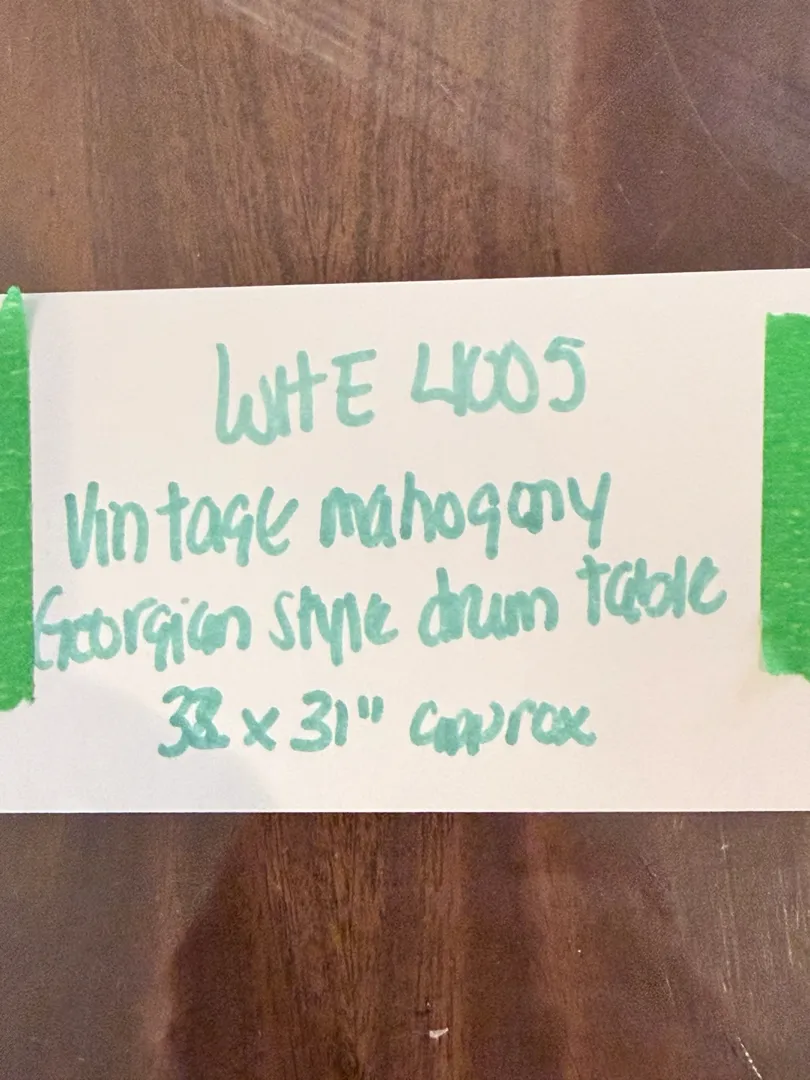 WHE 4005
Vintage mahogony
Georgian style drum table
38 x 31" approx